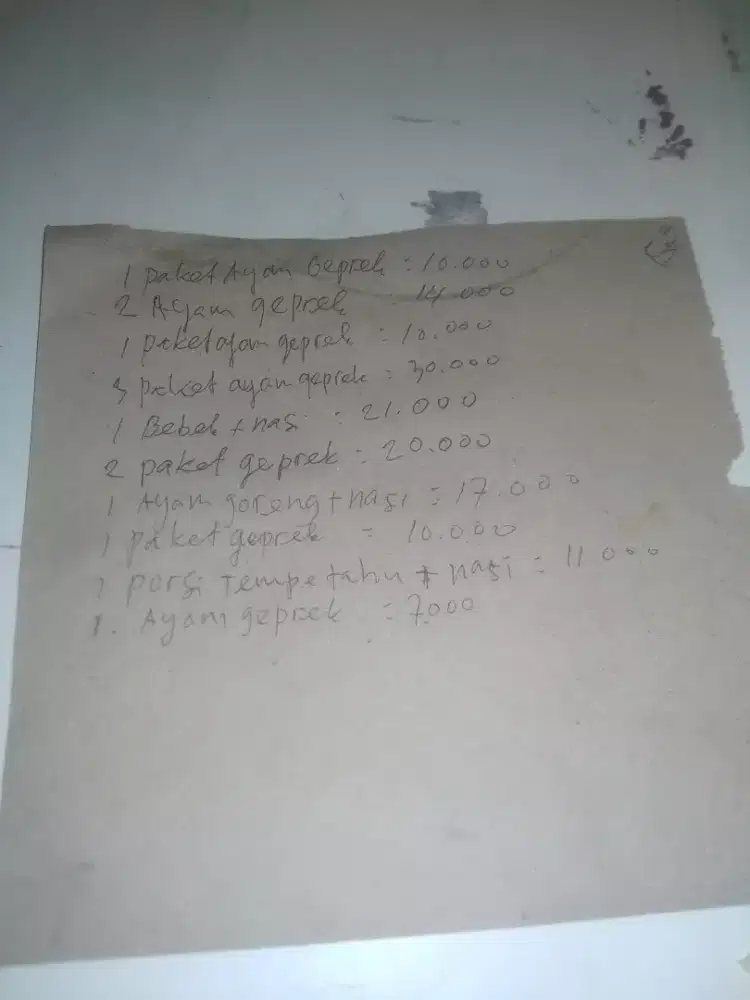 1 paket Ayam Geprek : 10.000
2 Ayam geprek : 14.000
1 paket ayam geprek : 10.000
3 paket ayam geprek : 30.000
1 Bebek + nasi : 21.000
2 paket geprek : 20.000
1 Ayam goreng + nasi = 17.000
1 paket geprek = 10.000
1 porsi tempe tahu + nasi = 11 000
1. Ayam geprek = 7.000